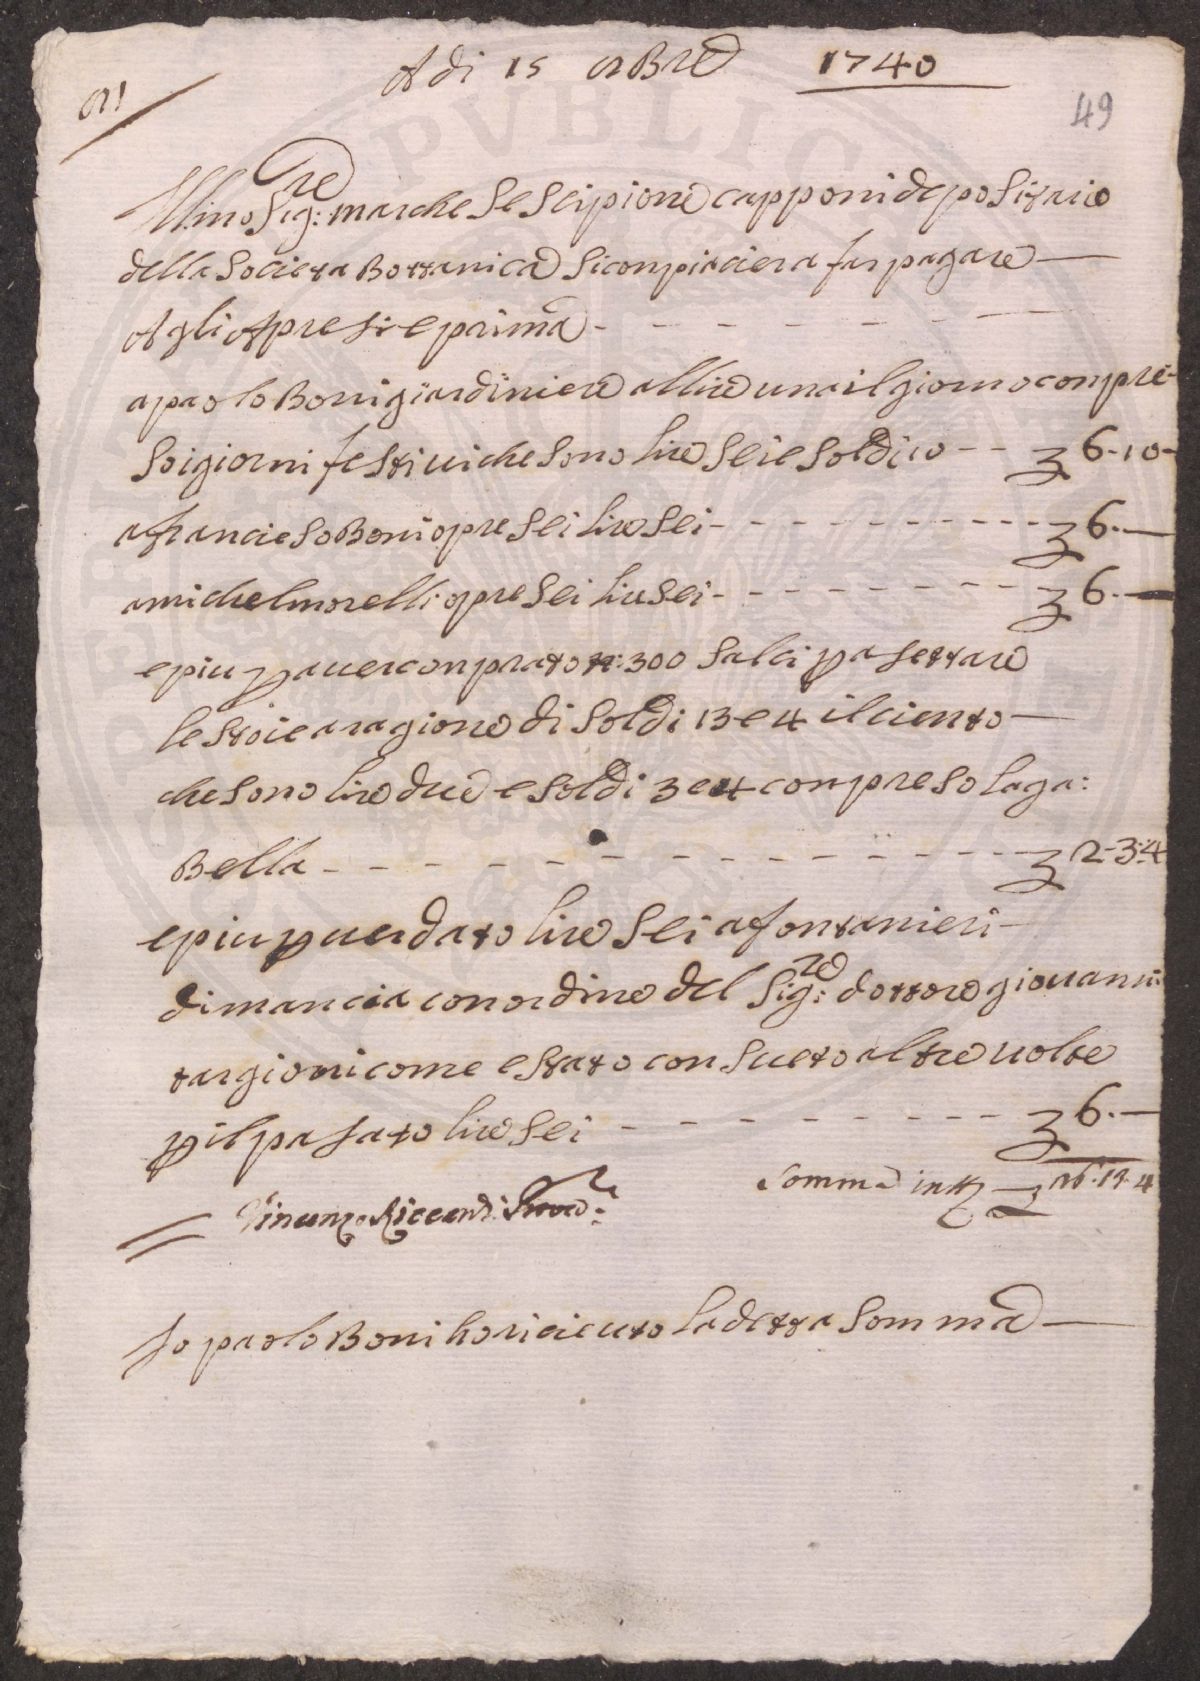 Adi 15 9Bre 1740
49
Ill.mo Sig:re marchese Scipione capponi depositario
della Societa Bottanica Si conpiaciera far pagare
Agli Apresi e prima
a paolo Boni giardiniere allire una il giorno conpre-
So i giorni festivi che sono lire Sei e Soldi 10 6.10-
a francieso Boni opre Sei lire Sei 6.
a michel morelli opre Sei lire Sei 6.
e piu p aver conprato n: 300 Salci p asettare
le Stoie a ragione di Soldi 13 e 4 il ciento
che sono lire due e Soldi 3 e 4 conpreso la ga:
Bella 2-3:4
e piu p aver dato lire Sei a fontanieri
di mancia con ordine del Sig:re dottore giovanni
targioni come e stato consueto altre volte
p il pasato lire Sei 6.
Somma in tt
Vincenzo Riccardi
Io paolo Boni ho riceuto la detta Somma